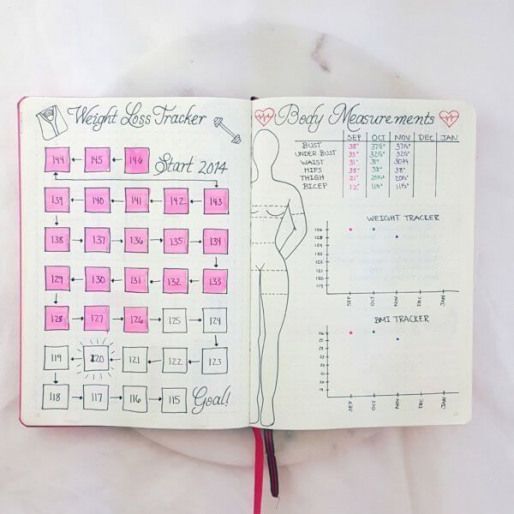 Weight Loss Tracker
144 145 146 Start 2014
139 140 141 142 143
138 137 136 135 134
129 130 131 132 133
128 127 126 125 124
119 120 121 122 123
118 117 116 115 Goal!
Body Measurements
SEP OCT NOV DEC JAN
BUST 38"
UNDER BUST
WAIST 31" 31"
HIPS 38" 38" 38"
THIGH 21"
BICEP 12"
WEIGHT TRACKER
SEP OCT NOV DEC JAN
BMI TRACKER
SEP OCT NOV DEC JAN